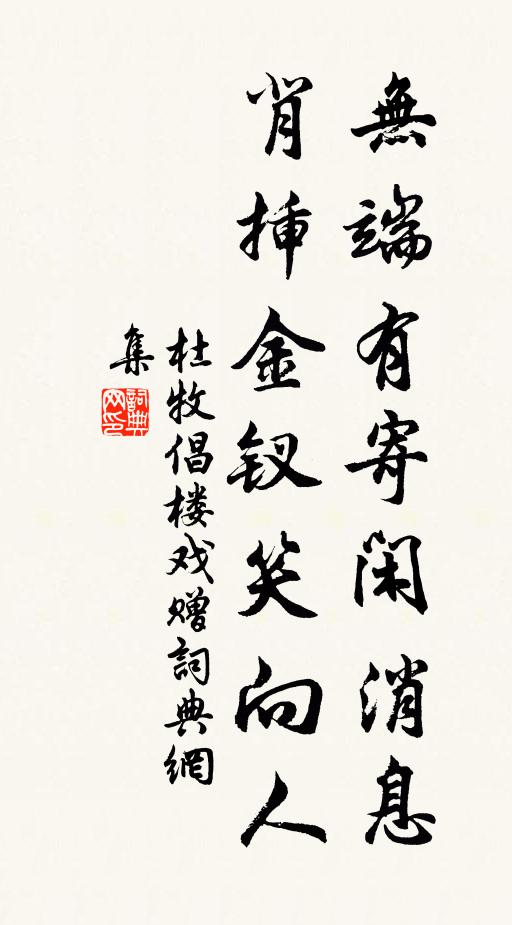 無端有寄閑消息
背插金钗笑向人
杜牧倡楼戏贈詞典網
集
詞典网印